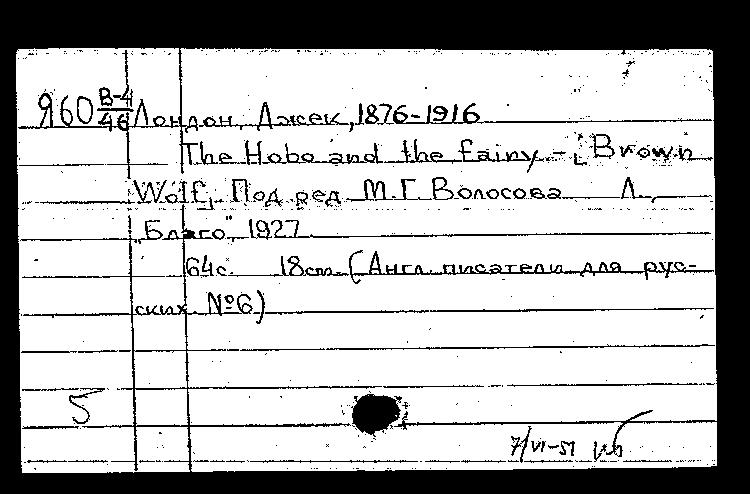 Я60 В-4/46 Лондон, Джек, 1876-1916
The Hobo and the fairy. - [Brown
Wolf] Под ред М.Г. Волосова Л.,
"Благо", 1927.
64с. 18см. (Англ. писатели для рус-
ских №6)
5
7/VI-51